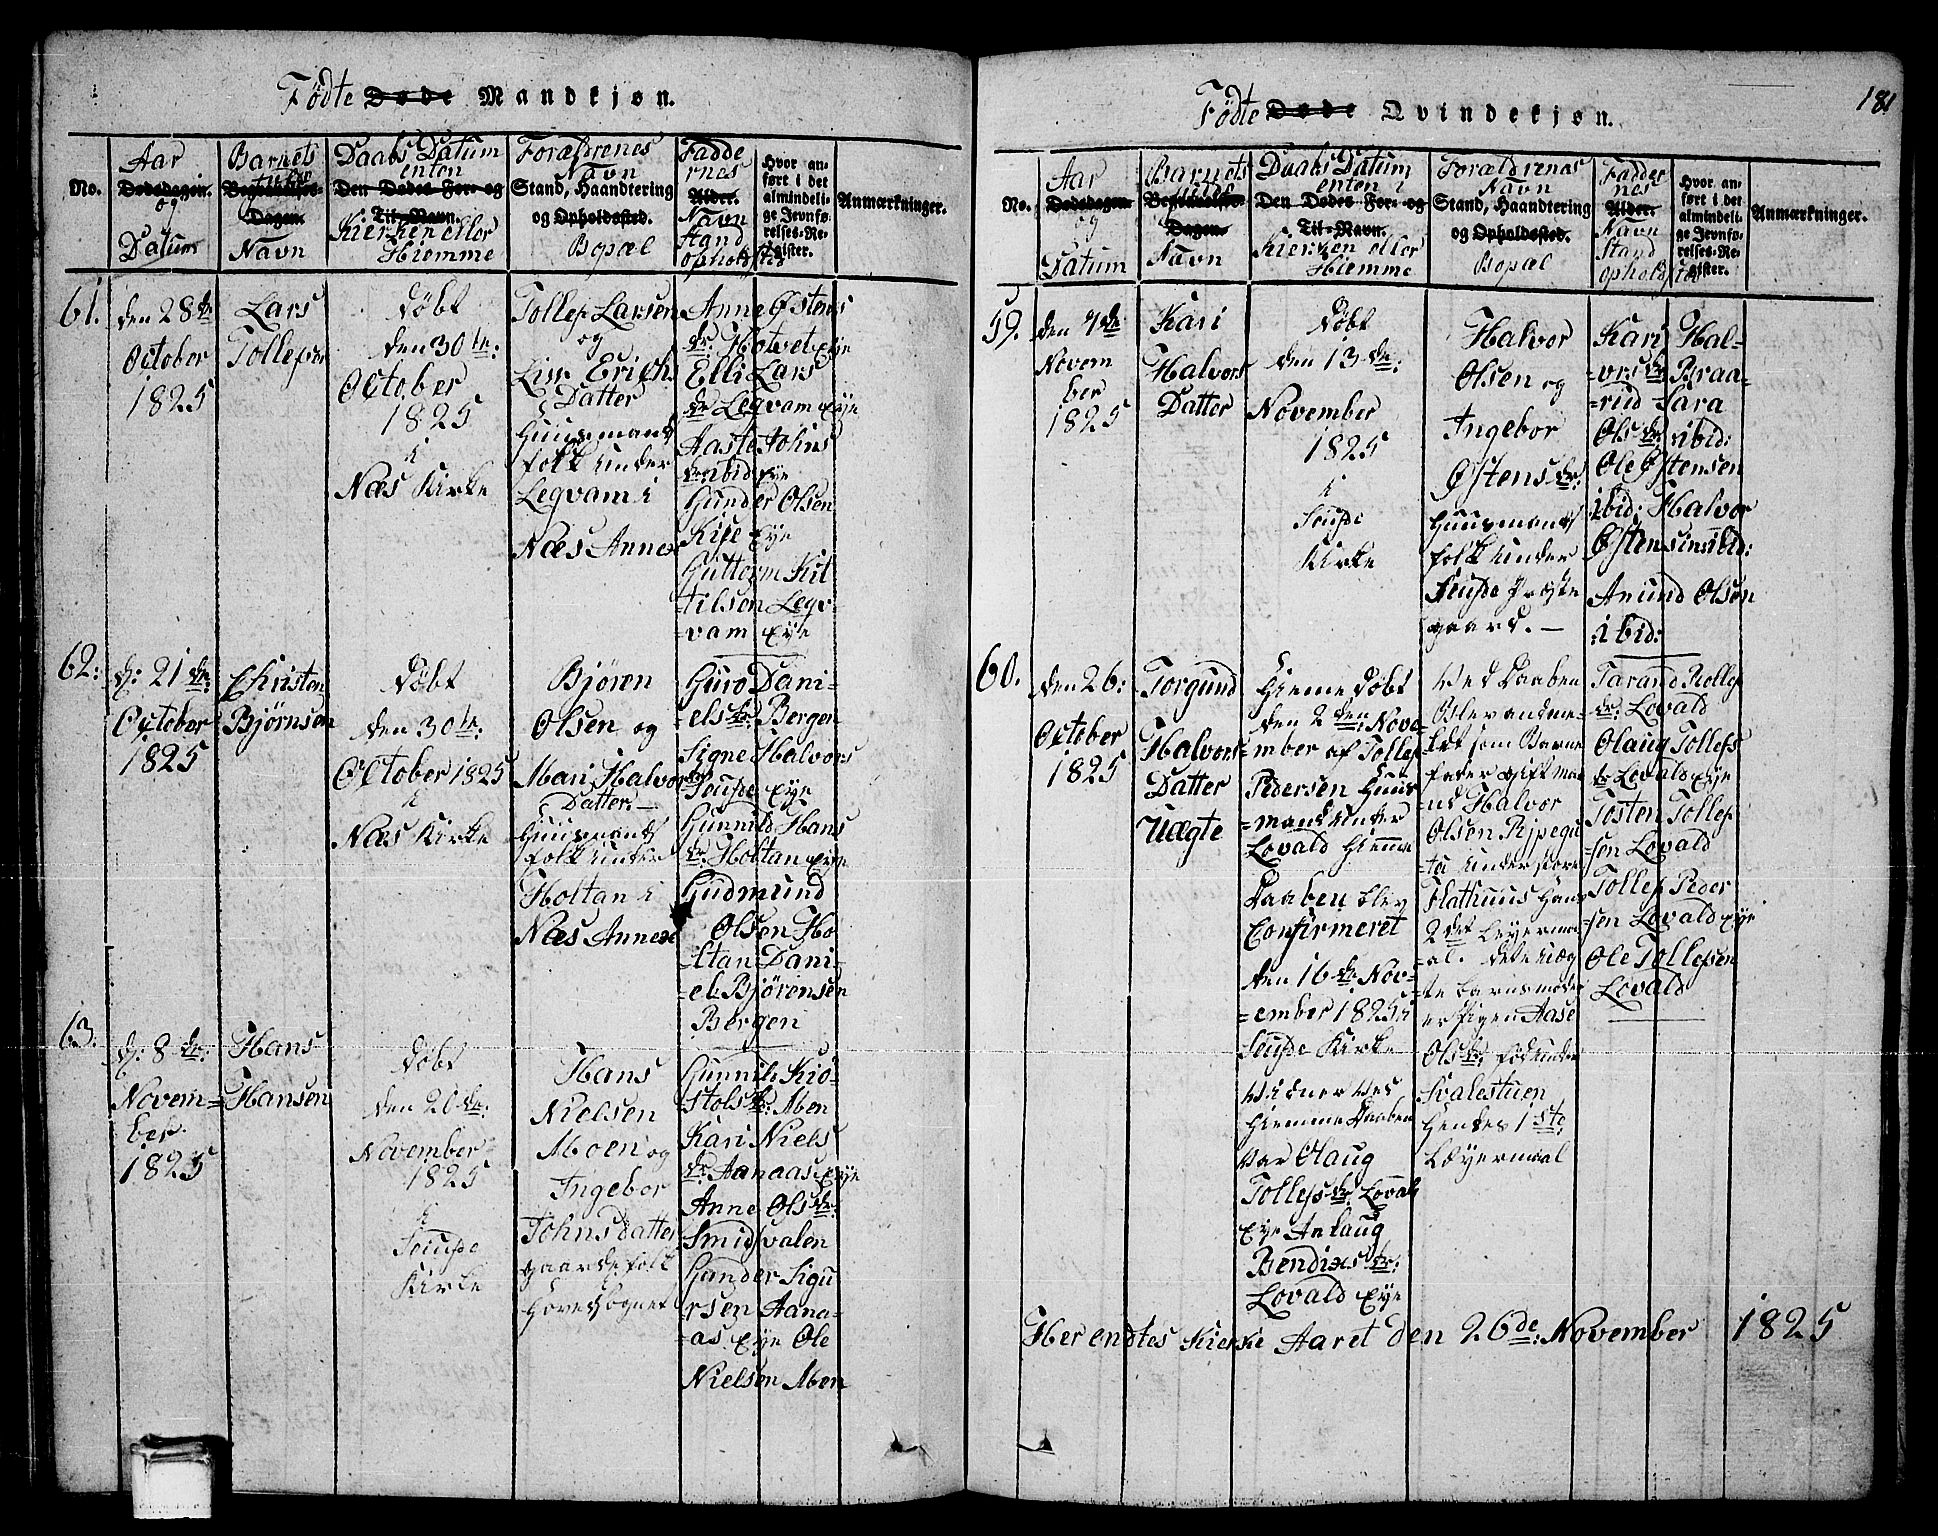 Fødte Døde Mandkjøn.
No.
Aar
Dødsdagen.
og
Datum
Barnets
Begravelses-
Dagen.
Navn
Daabs Datum
enten i
Den Dødes For- og
Til-Navn.
Kierken eller
Hiemme
Forældrenes
Navn
Stand, Haandtering
og Opholdssted.
Bopæl
Fadde
rnes
Alder.
Navn
Stand
opholdsted
Hvor an-
ført i det
almindeli-
ge Jevnfø-
relses-Re-
gister.
Anmærkninger.
61.
den 28de
October
1825
Lars
Tollefsen
Døbt
den 30te:
October
1825
i
Næs Kirke
Tollef Larsen
og
Liv Erichs
Datter
Huusmands
folk under
Legvam i
Næs Annex
Anne Østens
dr. Hotvet eye
Elli Lars
dr Legvam eye
Aasle Johns
dr. ibid eye
Gunder Olsen
Kise eye
Gutterm Kit
-tilsen Legv-
-vam eye
62:
d: 21de:
October
1825
Christen
Bjørnsen
Døbt
den 30te:
October 1825
i
Næs Kirke
Bjøren
Olsen og
Mari Halvors
Datter. —
Huusmands
folk under
Holtan i
Næs Annex
Guro Dani-
elsdr: Bergen
Signe Halvors
dr Seufde eye
Gunnild Hans
dr. Holtan eye
Gudmund
Olsen Ho
-ltan Dani-
=el Bjørensen
Bergen
63.
d: 8de:
Novem=
ber
1825
Hans
Hansen
Døbt
den 20de:
November
1825
i
Seufde
Kirke
Hans
Nielsen
Moen og
Ingebor
Johnsdatter
gaardefolk
Hovedsognet
Gunnild Kio-
stolsdr: Moen
Kari Niels
dr. Aanaas eye
Anne Olsdr:
Smidsvalen
Gunder Sigu
rsen Aana-
=as eye Ole
Nielsen Moen
181
Fødte Døde Qvindekjøn.
No.
Aar
Dødsdagen.
og
Datum
Barnets
Begravelses-
Dagen.
Navn
Daabs Datum
enten i
Den Dødes For- og
Til-Navn.
Kierken eller
Hiemme
Forældrenes
Navn
Stand, Haandtering
og Opholdssted.
Bopæl
Fadder
nes
Alder.
Navn
Stand
opholdsted
Hvor an-
ført i det
almindeli-
ge Jevnfø-
relses-Re-
gister.
Anmærkninger.
59.
den 7de
Novem
ber
1825
Kari
Halvors
Datter
Døbt
den 13de:
November
1825
i
Seufde
Kirke
Halvor
Olsen og
Ingebor
Østensdr:
Huusmands
folk under
Seufde Præste
gaard. —
Kari Hal-
-vrsdr Braa-
=rud Sara
Olsdr: ibid:
Ole Østensen
ibid: Halvor
Østensen ibid:
Anund Olsøn
ibid:
60.
den 26:
October
1825
Torgund
Halvors
Datter
Uægte
Hieme døbt
den 2den Nove
=mber af Tollef
Pedersen Huus
=mand under
Lovald Hieme
Daaben blev
Confirmeret
den 16de Nov-
=ember 1825 i
Seufde Kirke
Vidner ved
Hiemme Daaben
var Olaug
Tollefsdr. Lovald
Eye Anlaug
Bendixsdr:
Lovald Eye
Ved Daaben
blev andme-
ldt som Barne
fader gift ma
nd Halvor
Olsen Rjpegu
ta under store
Flathuus hans
2det Leyerma-
al. dette uæg
-te Barns moder
er Pigen Aase
Olsdr. fød under
Svalestuen
hendes 1ste
Leyermaal
Tarand Rollef
dr: Lovald
Olaug Tollefs
dr Lovald eye
Tosten Tollef
-sen Lovald
Tollef Peder
-sen Lovald eye
Ole Tollefsen
Lovald
Her endtes Kirke Aaret den 26de: November 1825